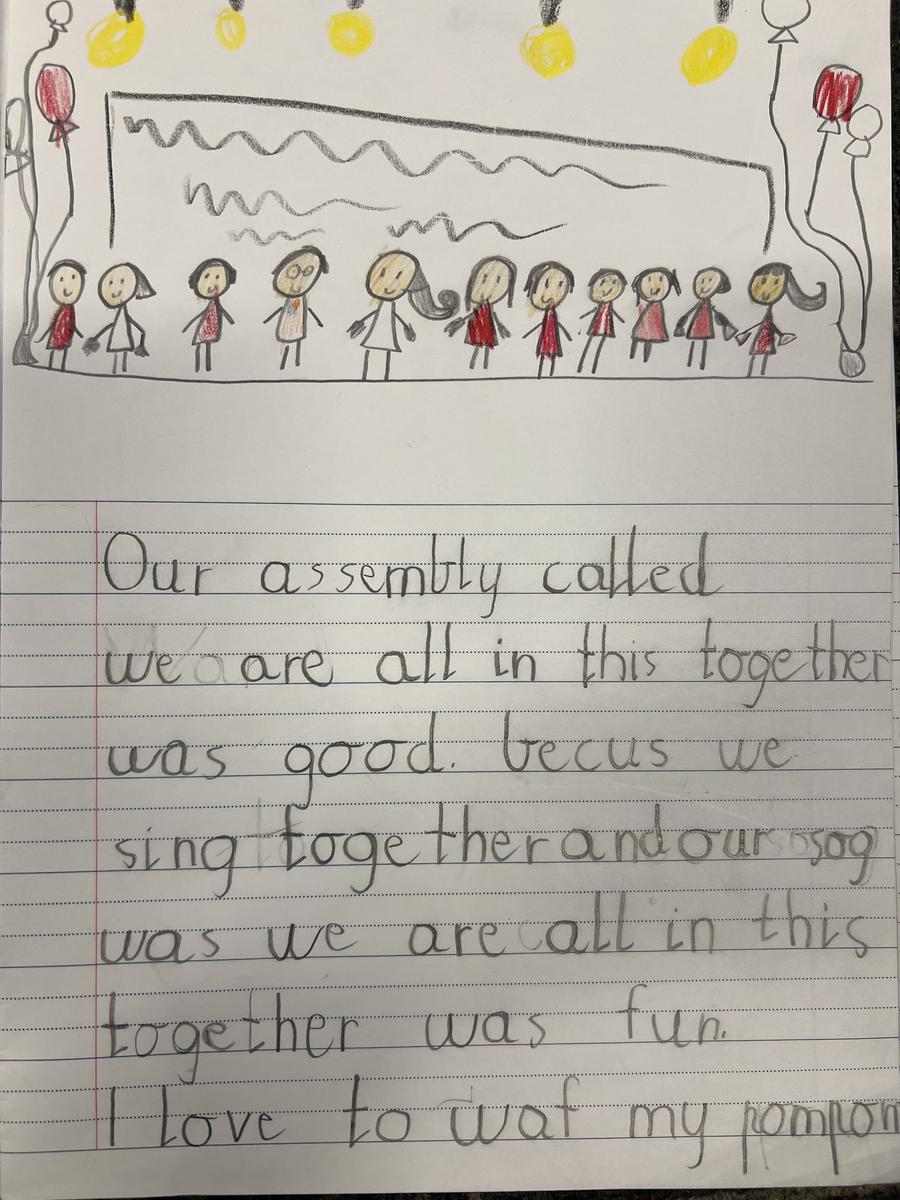 Our assembly called
we are all in this together
was good. becus we
sing together and our sog
was we are all in this
together was fun.
I love to waf my pompom